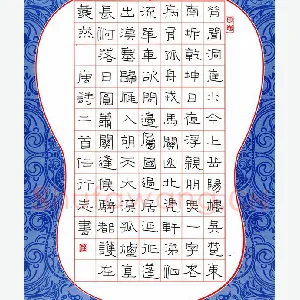 昔聞洞庭水今上岳陽樓吳楚東
南坼乾坤日夜浮親朋無一字老
病有孤舟戎馬關山北憑軒涕泗
流單車欲問邊屬國過居延征蓬
出漢塞歸雁入胡天大漠孤煙直
長河落日圓蕭關逢候騎都護在
燕然 唐詩二首任行志書